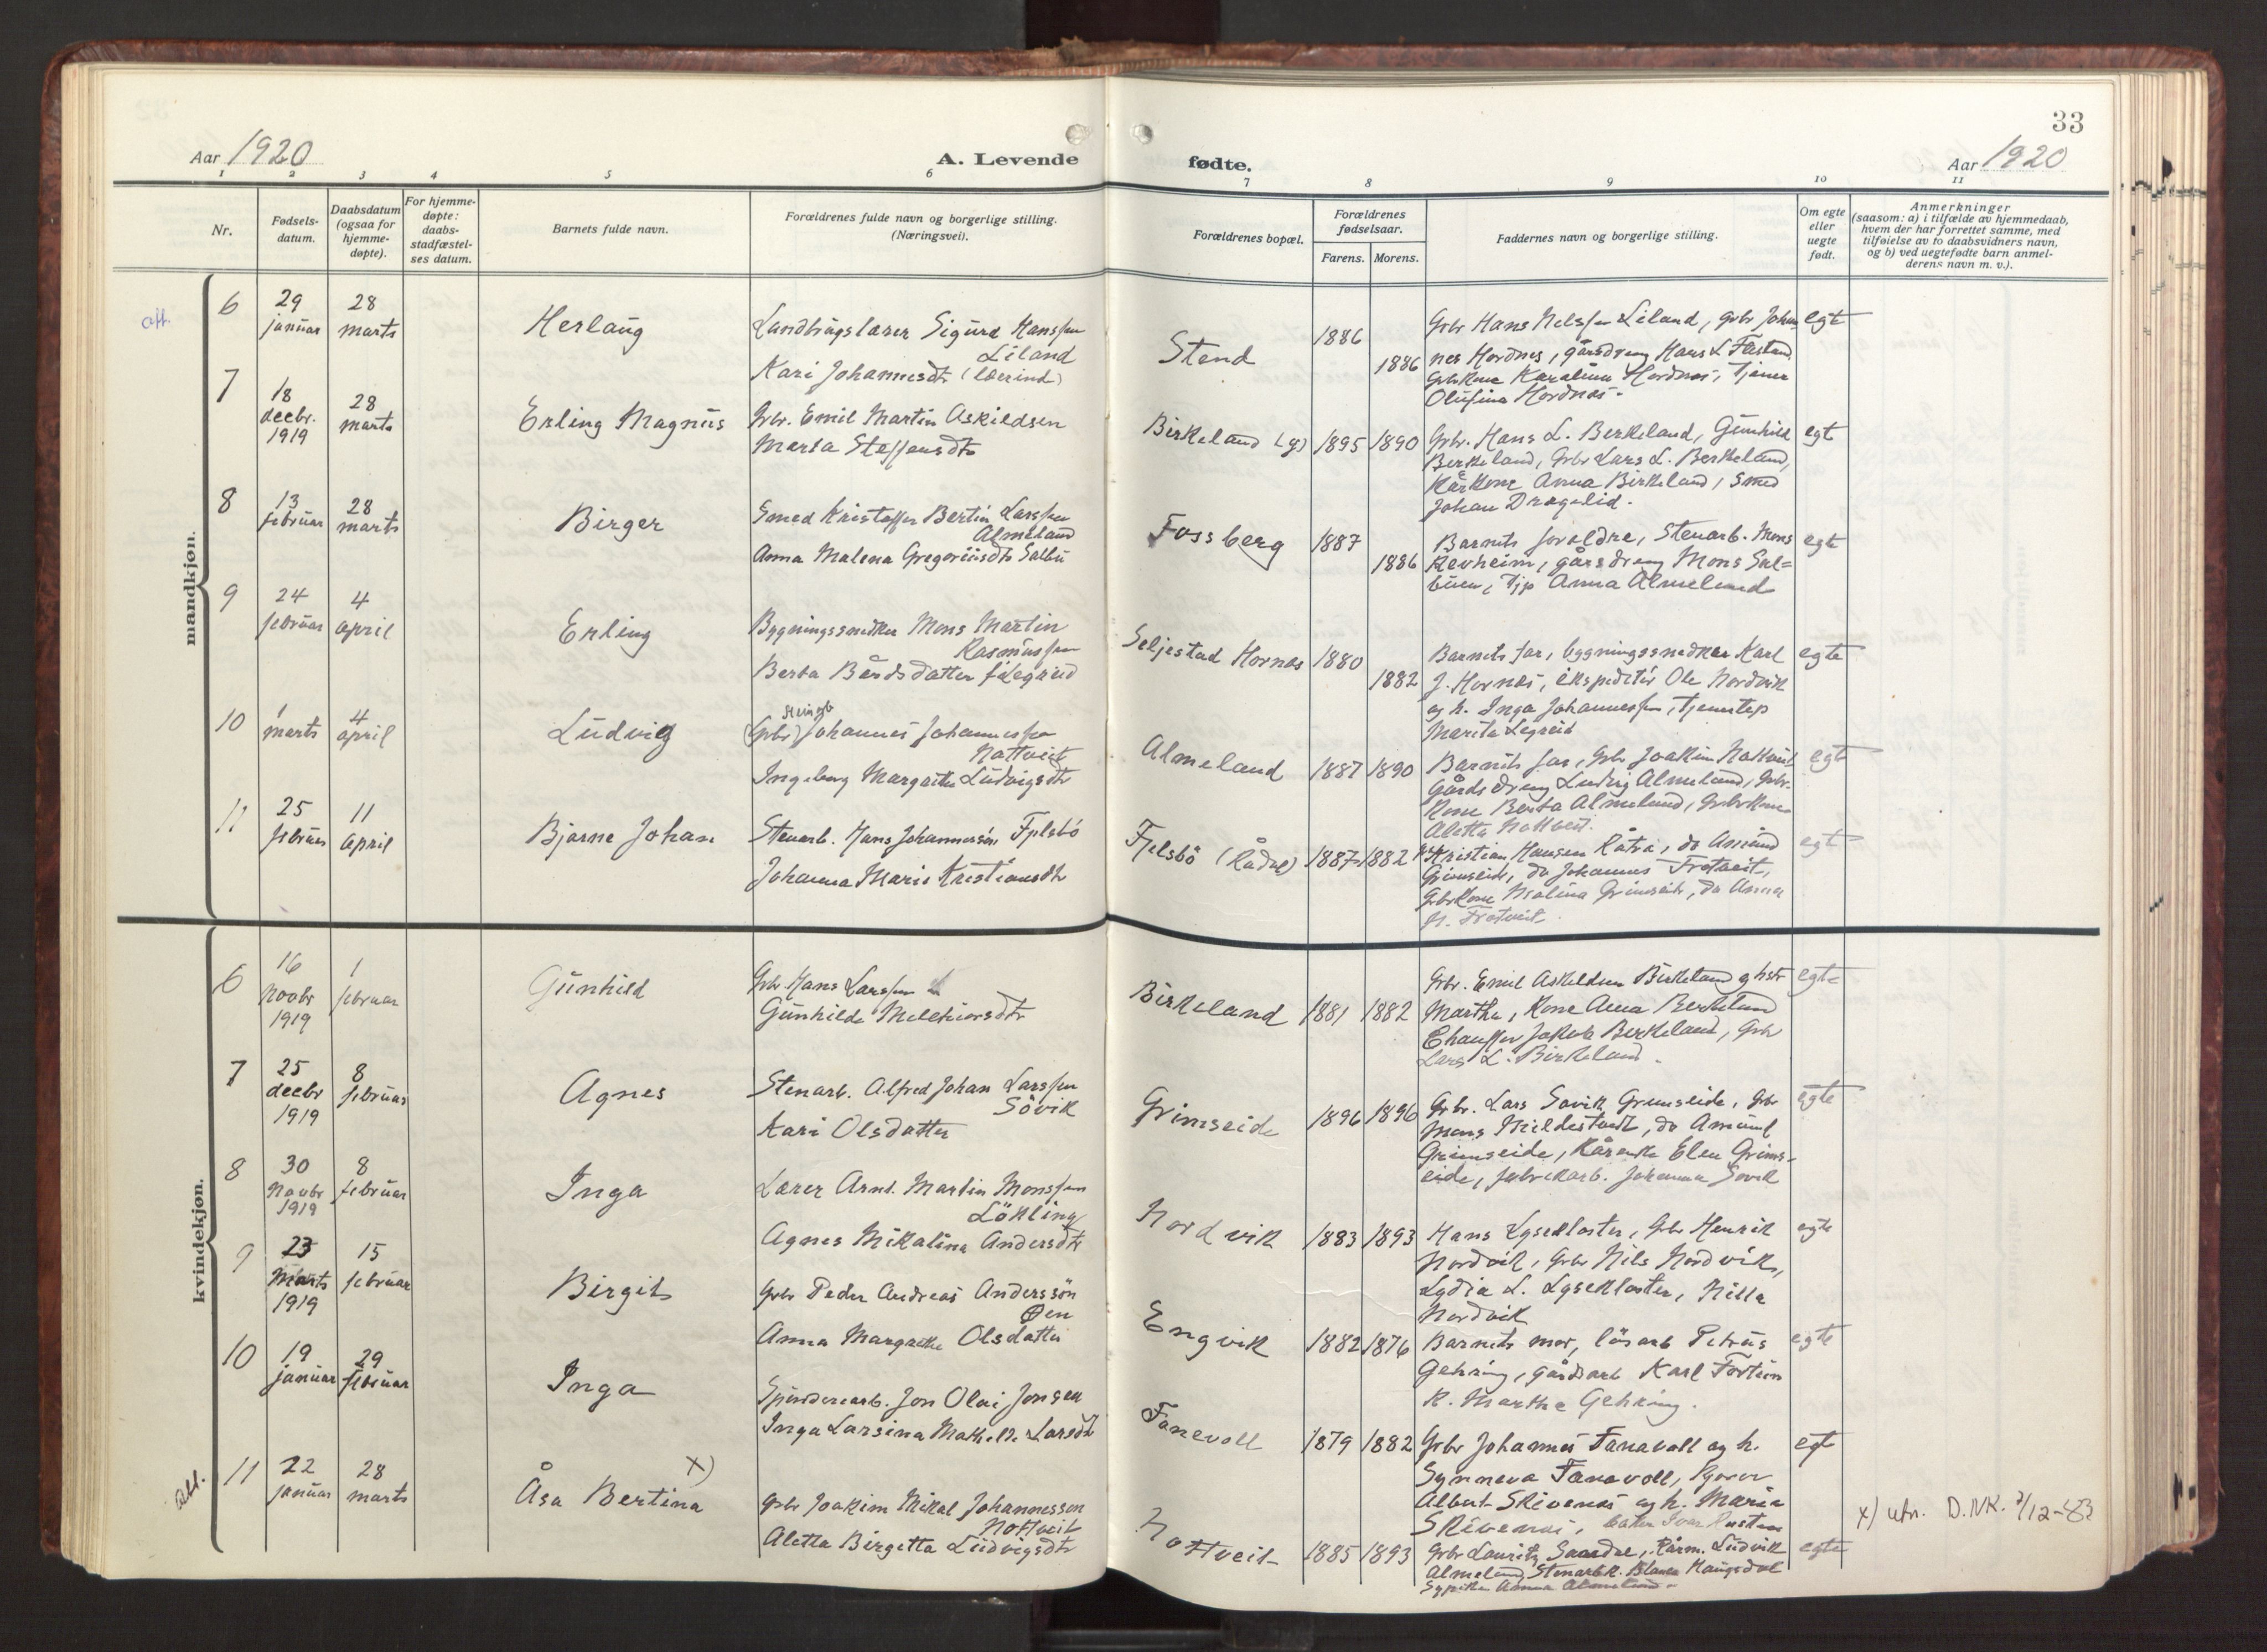 33
Aar 1920
A. Levende
fødte.
Aar 1920
1 2 3 4 5 6 7 8 9 10 11
Nr.
Fødsels-
datum.
Daabsdatum
(ogsaa for
hjemme-
døpte).
For hjemme-
døpte:
daabs-
stadfæstel-
ses datum.
Barnets fulde navn.
Forældrenes fulde navn og borgerlige stilling.
(Næringsvei).
Forældrenes bopæl.
Forældrenes
fødselsaar.
Farens. Morens.
Faddernes navn og borgerlige stilling.
Om egte
eller
uegte
født.
Anmerkninger
(saasom: a) i tilfælde av hjemmedaab,
hvem der har forrettet samme, med
tilføielse av to daabsvidners navn,
og b) ved uegtefødte barn anmel-
derens navn m. v.).
mandkjøn.
6
29
januar
28
marts
Herlaug
Landbrugslærer Sigurd Hanssen
Liland
Kari Johannesdtr
Stend
1886
1886
Grbr Hans Nelssen Liland, grbr Johan
nes Hordnes, gårsdreng Hans L Fåstand
Grbrkone Karoline Hordnes, Tjener
Olufina Hordnes.
egt
7
18
decbr.
1919
28
marts
Erling Magnus
Grbr. Emil Martin Askildsen
Marta Steffensdtr
Birkeland (g)
1895
1890
Grbr. Hans L. Berkeland, Gunhild
Berkeland, Grbr Lars L. Berkeland,
Kårkone Anna Birkeland, Smed
Johan Dragelid.
egt
8
13
februar
28
marts
Birger
Smed Kristoffer Bertin Larssen
Almeland
Anna Malena Gregoriusdtr Salbu
Fossberg
1887
1886
Barnets foreldre, Stenarb. Mons
Revheim, gårsdreng Mons Sal=
buen, Tjp Anna Almeland
egte
9
24
februar
4
april
Erling
Bygningssnedker Mons Martin
Rasmussen
Berta Bårdsdatter f Legreid
Seljestad Hornes
1880
1882
Barnets far, bygningssnedker Karl
J. Hornes, ekspeditör Ole Nordvik
og h. Inga Johannessen, Tjenestep
Marita Legreid
egte
10
1
marts
4
april
Ludvig
Steinarb
(Grbr) Johannes Johannessen
Nattveit
Ingeborg Margrethe Ludvigsdtr
Almeland
1887
1890
Barnets far, Grbr Joakim Nattveit
Gårdsdreng Ludvig Almeland, Grbr.
kone Berta Almeland, Grbrkone
Aletta Nottveit.
egt
11
25
februar
11
april
Bjarne Johan
Stenarb. Hans Johannessön Fjelsbö
Johanna Marie Kristiansdtr
Fjelsbö (Rådal)
1887
1882
Kristian Hansen Råtræ, do Amund
Grimseide, do Johannes Trotveit,
Grbrkone Malina Grimseide, do Anna
H. Frotveit.
egt
kvindekjøn.
6
16
Novbr
1919
1
februar
Gunhild
Grbr. Hans Larssen
Gunhilde Melchiorsdtr
Birkeland
1881
1882
Grbr. Emil Askeldsen Birkeland og hstr
Martha, Kone Anna Berkeland
Chauffør Jakob Berkeland, Grbr
Lars L. Birkeland.
egte
7
25
decbr
1919
8
februar
Agnes
Stenarb. Alfred Johan Larssen
Sövik
Kari Olsdatter
Grimseide
1896
1896
Grbr. Lars Sovik Grimseide, Grbr
Mons Mildestveit, do Amund
Grimseide, Kårenke Elen Grims-
eide, fabrikarb. Johanna Sovik
egte
8
30
Novbr
1919
8
februar
Inga
Lærer Arnt Martin Monssen
Lökling
Agnes Mikalina Andersdtr
Nordvik
1883
1893
Hans Lysekloster, Grbr Henrik
Nordvik, Grbr Nils Nordvik,
Lydia L. Lysekloster, Nilla
Nordvik
egte
9
23
Marts
1919
15
februar
Birgit
Grbr Peder Andreas Anderssön
Öen
Anna Margrethe Olsdatter
Engvik
1882
1876
Barnets mor, lösarb Petrus
Gehring, gårdsarb Karl Fortun
K. Martha Gehring.
egte
10
19
januar
29
februar
Inga
Spinderiarb. Jon Olai Jonsen
Inga Larsina Mathilde Larsdtr
Fanevoll
1879
1882
Grbr Johannes Fanavoll og h.
Synneva Fanavoll,
Albert Skivenes og h. Maria
Skivenes,
egt
11
22
januar
28
marts
Åsa Bertina x)
Grbr Joakim Mikal Johannessen
Nottveit
Aletta Birgetta Ludvigsdtr
Nottveit
1885
1893
Grbr Lauritz Saardal, Kårm. Ludvik
Almeland, Stenarbk. Blanca Haugsdal
Sypike Anna Almeland.
egte
x) utn. D.NK. 7/12-83